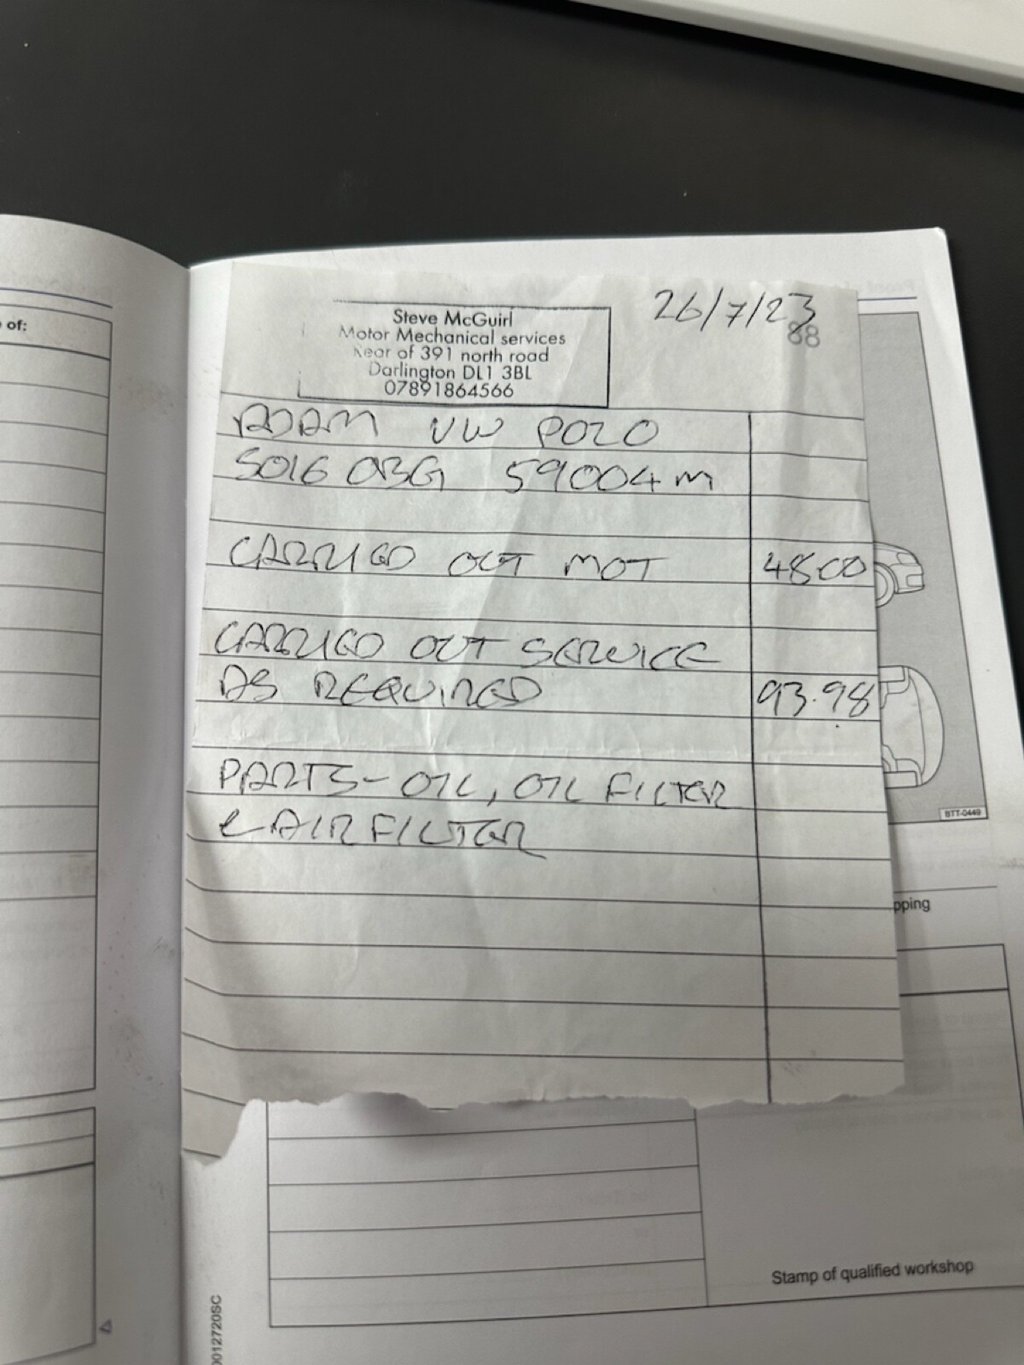 of:
Steve McGuirl
Motor Mechanical services
Rear of 391 north road
Darlington DL1 3BL
07891864566
26/7/23
88
ADAM VW POLO
SO16 OBG 59004m
CARRIED OUT MOT 48.00
CARRIED OUT SERVICE
AS REQUIRED 93.98
PARTS- OIL, OIL FILTER
& AIR FILTER
BTT-0449
pping
Stamp of qualified workshop
0012720SC